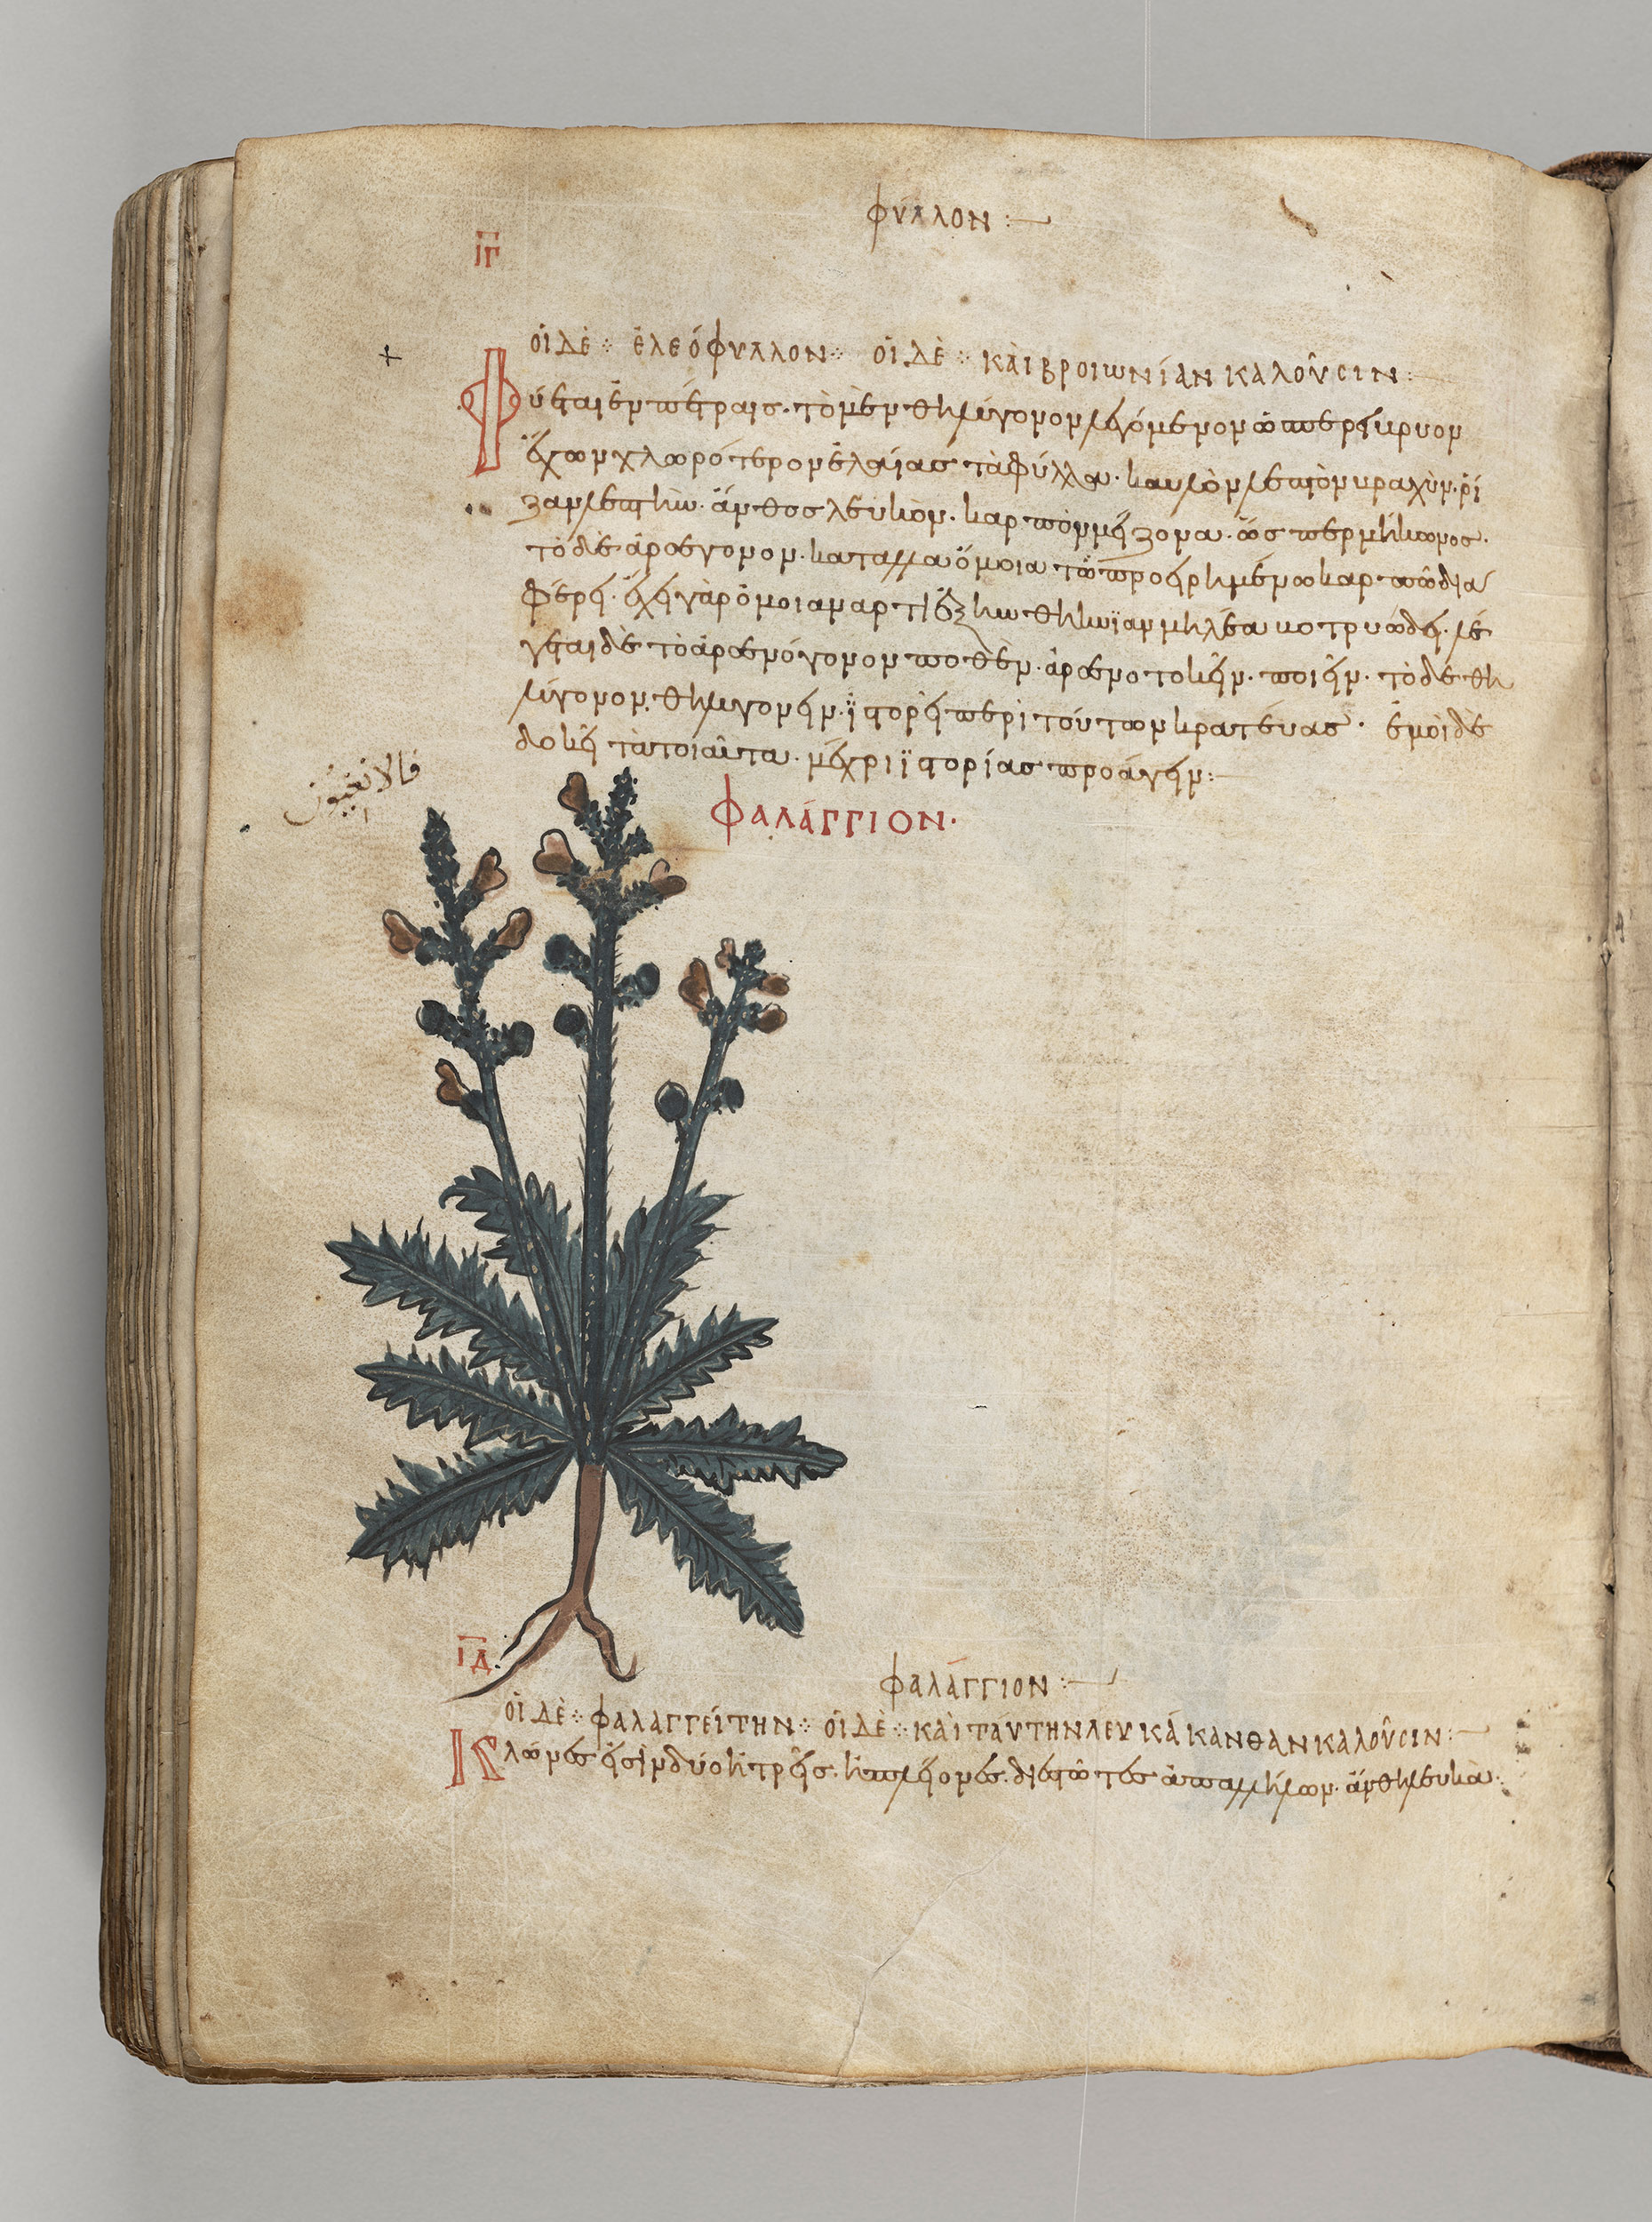 ΦΥΛΛΟΝ :—
ΙΓ
ΟΙ ΔΕ ⁘ ἘΛΕΌΦΥΛΛΟΝ ⁘ ΟΙ ΔΕ ⁘ ΚΑΙ ΒΡΟΙΩΝΊΑΝ ΚΑΛΟΥ͂ϹΙΝ :—
Φύεται ἐν πέτραις · τὸ μὲν θηλύγονον λεγόμενον ὥσπερ βρύον
ἔχων χλωρότερον ἐλαίας τὰ φύλλα · καυλὸν λεπτὸν βραχὺν · ῥί
ζαν λεπτὴν · ἄνθος λευκὸν · καρπὸν μείζονα · ὥσπερ μήκωνος ·
τὸ δὲ ἀρσεγονον · κατ ἄλλα ὅμοια τῶ προειρημένω καρπῶ δια
φέρει · ἔχει γὰρ ὅμοιαν ἄρτι ἐξ
γεται δὲ τὸ ἀρσενόγονον ποθὲν · ἀρσενοτοκεῖν · ποιεῖν · τὸ δὲ θη
λύγονον · θηλυγονεῖν · ϊστορεῖ περὶ τούτων κρατεύας · ἐμοὶ δὲ
δοκεῖ τὰ τοιαῦτα · μέχρι ϊστορίας προάγειν :—
فالانغيون
ΦΑΛΆΓΓΙΟΝ ·
ΙΔ
ΦΑΛΆΓΓΙΟΝ :—
ΟΙ ΔΕ ⁘ ΦΑΛΑΓΓΕΊΤΗΝ ⁘ ΟΙ ΔΕ ⁘ ΚΑΙ ΤΑΎΤΗΝ ΛΕΥΚΆΚΑΝΘΑΝ ΚΑΛΟΥ͂ϹΙΝ :—
Κλῶνές εἰσιν δύο ἢ τρεῖς · ἢ πλείονες · διεστῶτες ἀπ ἀλλήλων · ἄνθη λευκὰ ·